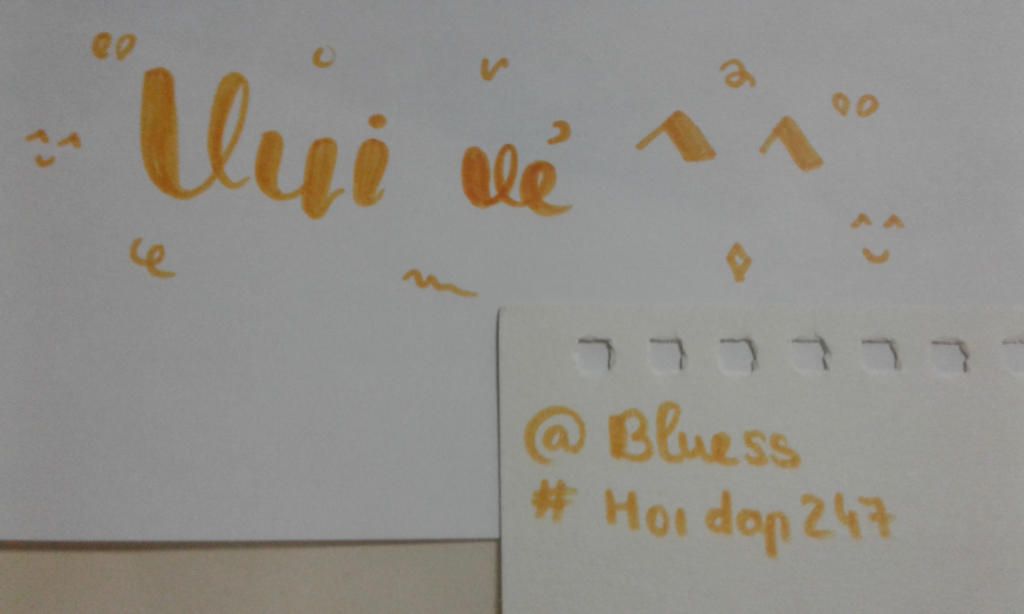 Vui vẻ ^ ^
@ Bluess
# Hoidap247